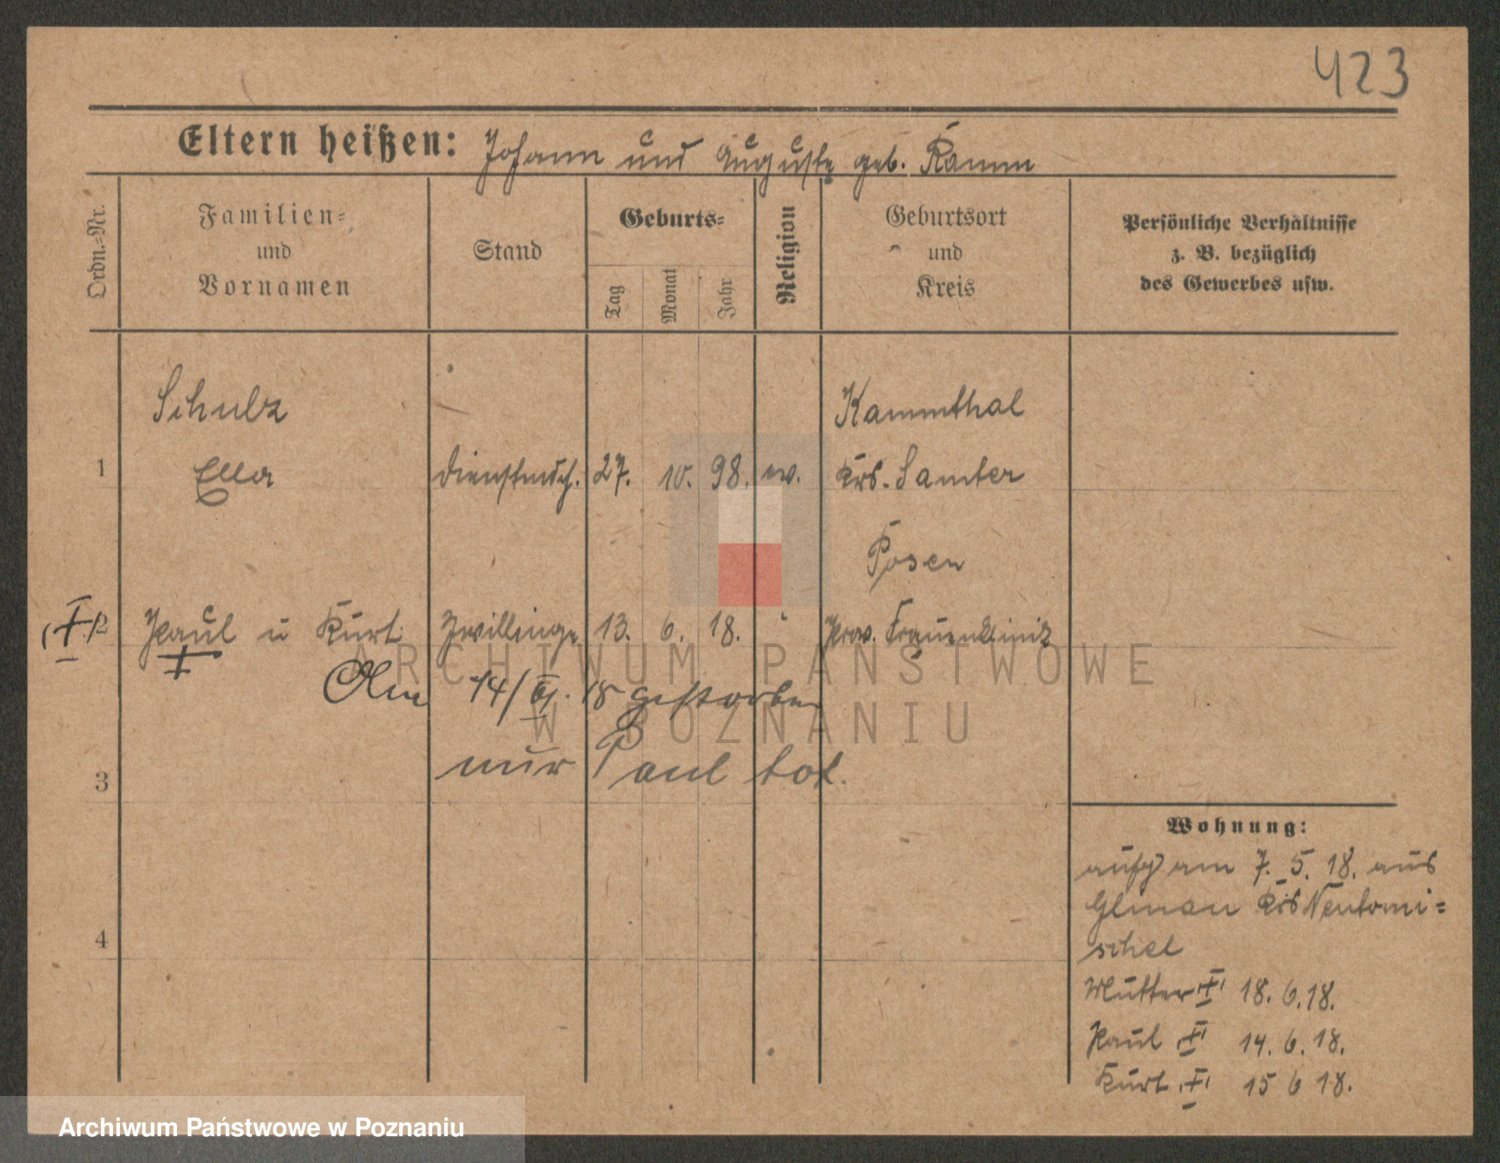 423
Eltern heißen: Johann und Auguste geb. Kamm
Ordn.=Nr.
Familien=
und
Vornamen
Stand
Geburts=
Tag
Monat
Jahr
Religion
Geburtsort
und
Kreis
Persönliche Verhältnisse
z. B. bezüglich
des Gewerbes usw.
Schulz
Kammthal
1 Ella Dienstmdch. 27. 10. 98. ev. Krs. Samter
Posen
2 Paul u Kurt Zwillinge 13. 6. 18. " Prov. Frauenklinik
14/6. 18 gestorben
nur Paul tot.
3
4
Wohnung:
am 7. 5. 18. aus
Glinau Krs Neutomi=
schel
Mutter 18. 6. 18.
Paul 14. 6. 18.
Kurt 15 6 18.
ARCHIWUM PAŃSTWOWE
W POZNANIU
Archiwum Państwowe w Poznaniu